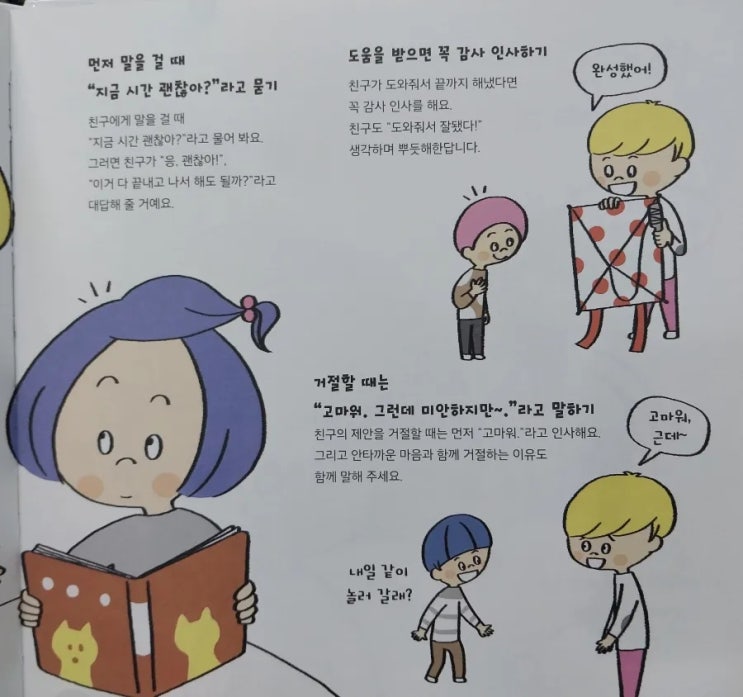 먼저 말을 걸 때
“지금 시간 괜찮아?”라고 묻기
친구에게 말을 걸 때
“지금 시간 괜찮아?”라고 물어 봐요.
그러면 친구가 “응. 괜찮아!”,
“이거 다 끝내고 나서 해도 될까?”라고
대답해 줄 거예요.
도움을 받으면 꼭 감사 인사하기
친구가 도와줘서 끝까지 해냈다면
꼭 감사 인사를 해요.
친구도 “도와줘서 잘됐다!”
생각하며 뿌듯해한답니다.
완성했어!
거절할 때는
“고마워. 그런데 미안하지만~.”라고 말하기
친구의 제안을 거절할 때는 먼저 “고마워.”라고 인사해요.
그리고 안타까운 마음과 함께 거절하는 이유도
함께 말해 주세요.
내일 같이
놀러 갈래?
고마워,
근데~